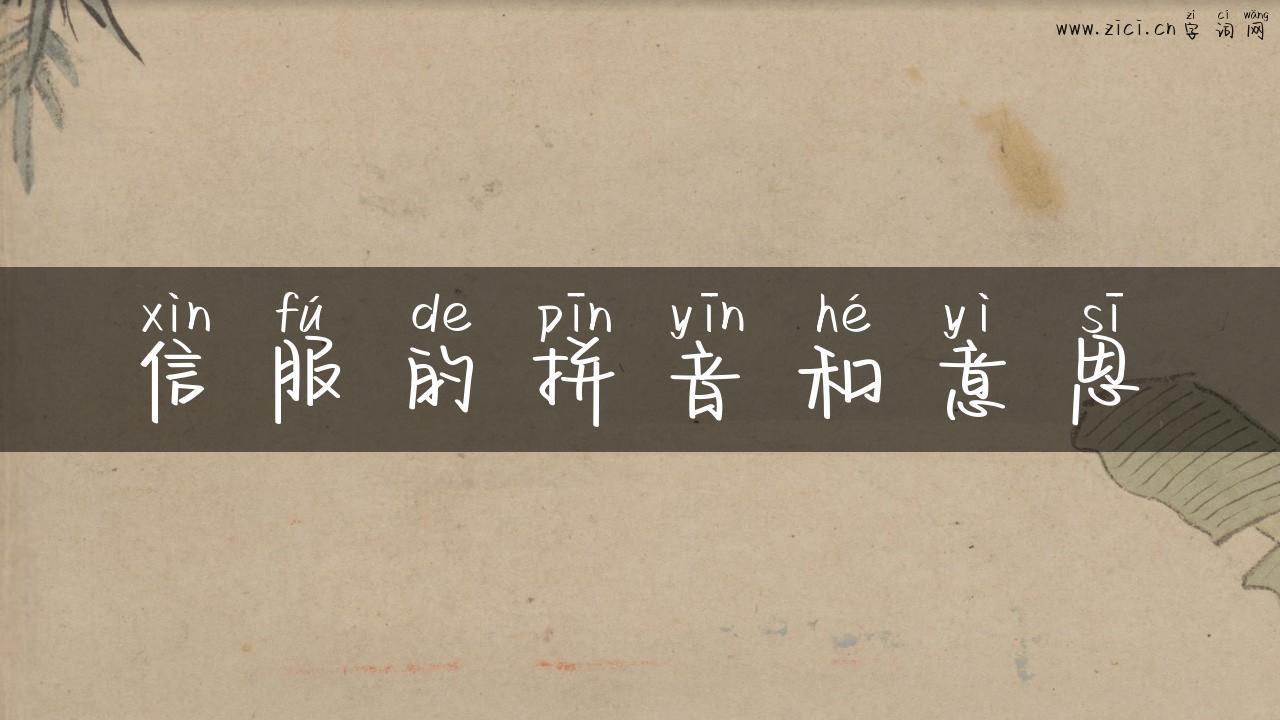 zì cí wǎng
www.zici.cn 字词网
xìn fú de pīn yīn hé yì sī
信服的拼音和意思